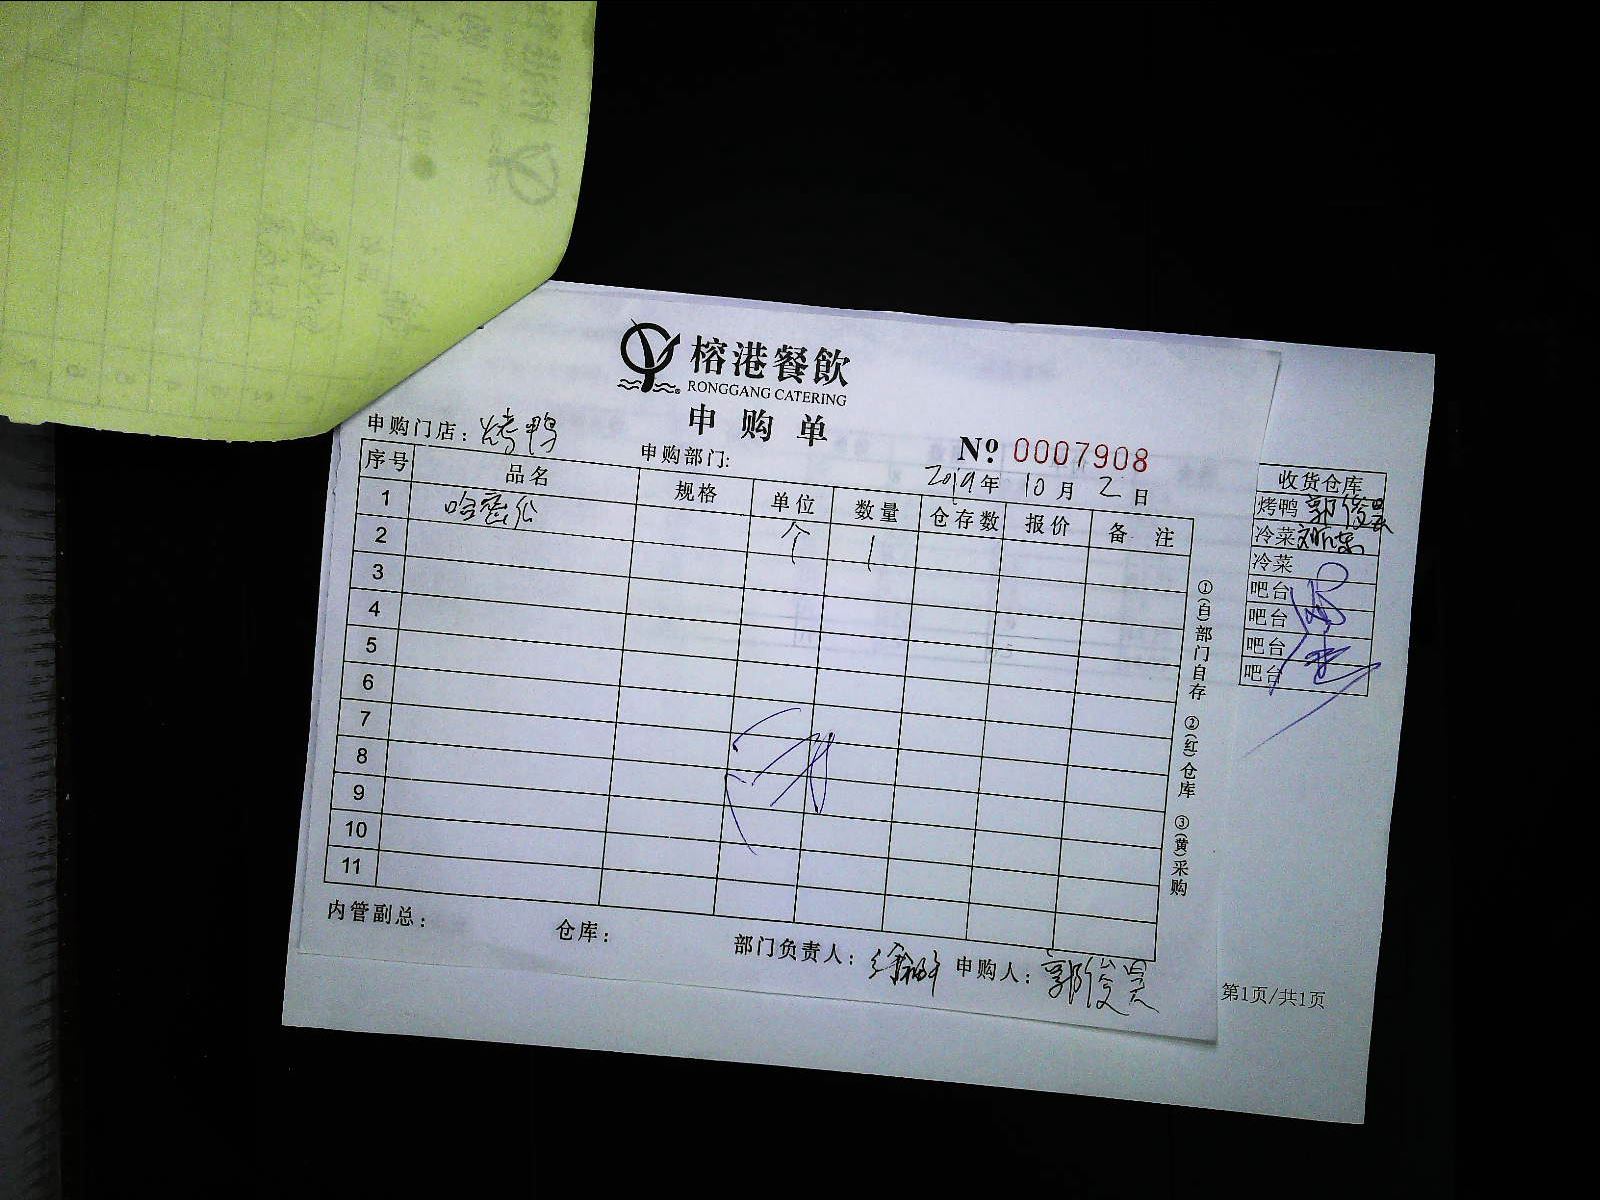 榕港餐飲
RONGGANG CATERING
申购单
申购门店：烤鸭
申购部门:
Nº 0007908
2019年 10月 2日
序号 品名 规格 单位 数量 仓存数 报价 备 注
1 哈密瓜 个 1
2
3
4
5
6
7
8
9
10
11
①(白)部门自存 ②(红)仓库 ③(黄)采购
内管副总： 仓库： 部门负责人： 申购人：郭俊昊
收货仓库
烤鸭 郭俊昊
冷菜
冷菜
吧台
吧台
吧台
吧台
第1页/共1页